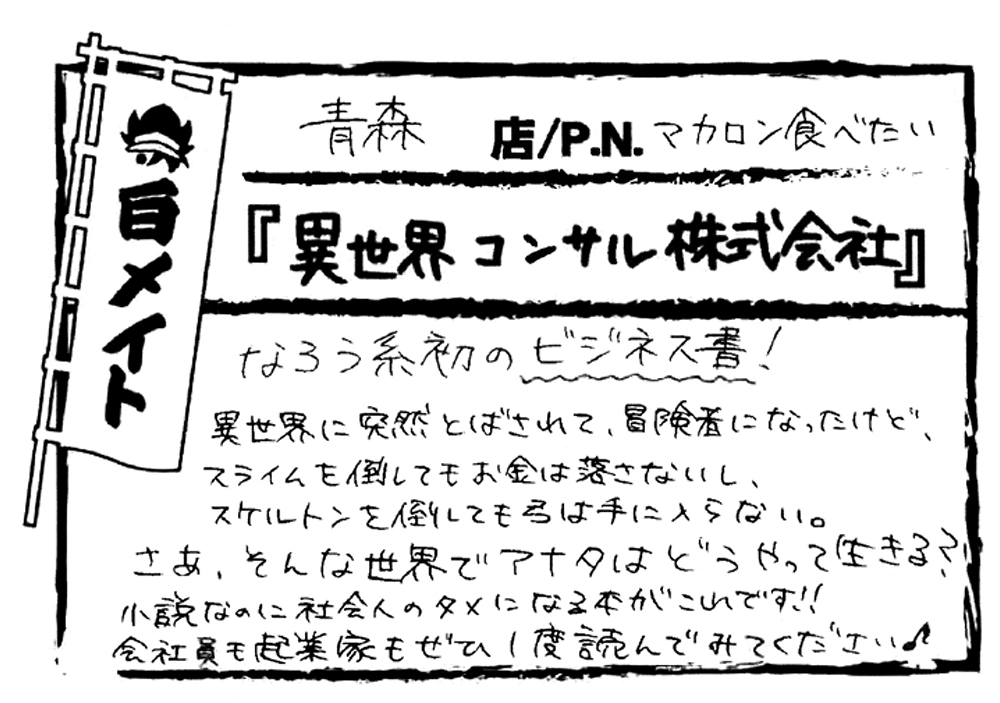 青森 店/P.N. マカロン食べたい
『異世界コンサル株式会社』
なろう系初のビジネス書!
異世界に突然とばされて、冒険者になったけど、
スライムを倒してもお金は落さないし、
スケルトンを倒しても弓は手に入らない。
さあ、そんな世界でアナタはどうやって生きる?
小説なのに社会人のタメになる本がこれです!!
会社員も起業家もぜひ1度読んでみてください♪
白メイト